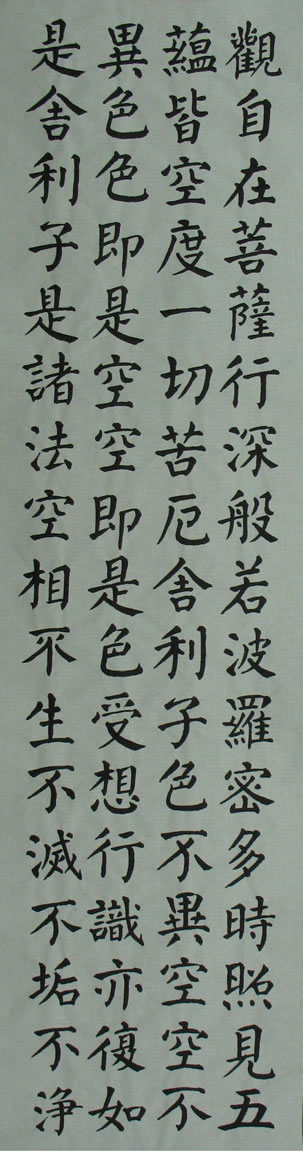 觀自在菩薩行深般若波羅密多時照見五
蘊皆空度一切苦厄舍利子色不異空空不
異色色即是空空即是色受想行識亦復如
是舍利子是諸法空相不生不滅不垢不淨